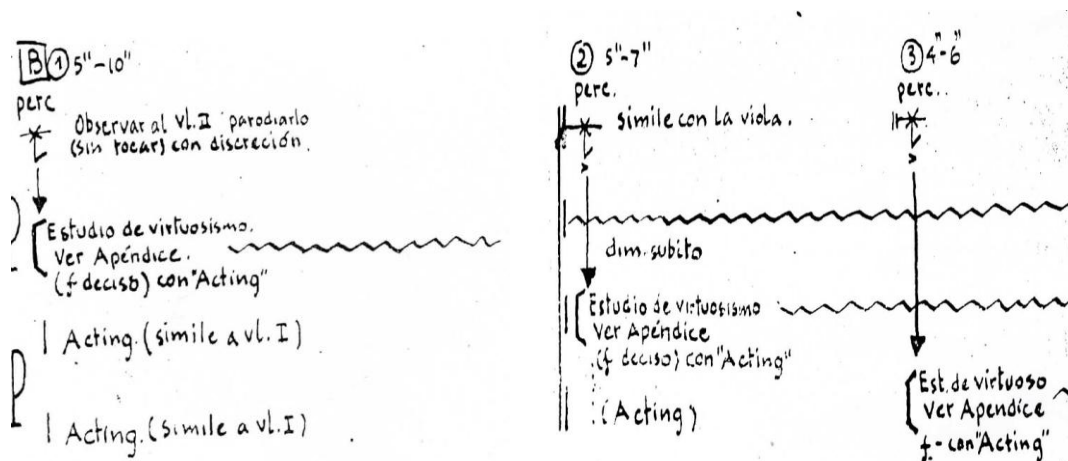 B ① 5"-10"
perc
Observar al Vl.II parodiarlo
(sin tocar) con discreción.
Estudio de virtuosismo.
Ver Apéndice.
(f deciso) con "Acting"
Acting. (simile a vl. I)
Acting. (simile a vl. I)
② 5"-7"
perc.
simile con la viola.
dim. subito
Estudio de virtuosismo
Ver Apéndice
(f deciso) con "Acting"
(Acting)
③ 4"-6"
perc..
Est. de virtuoso
Ver Apendice
f - con "Acting"